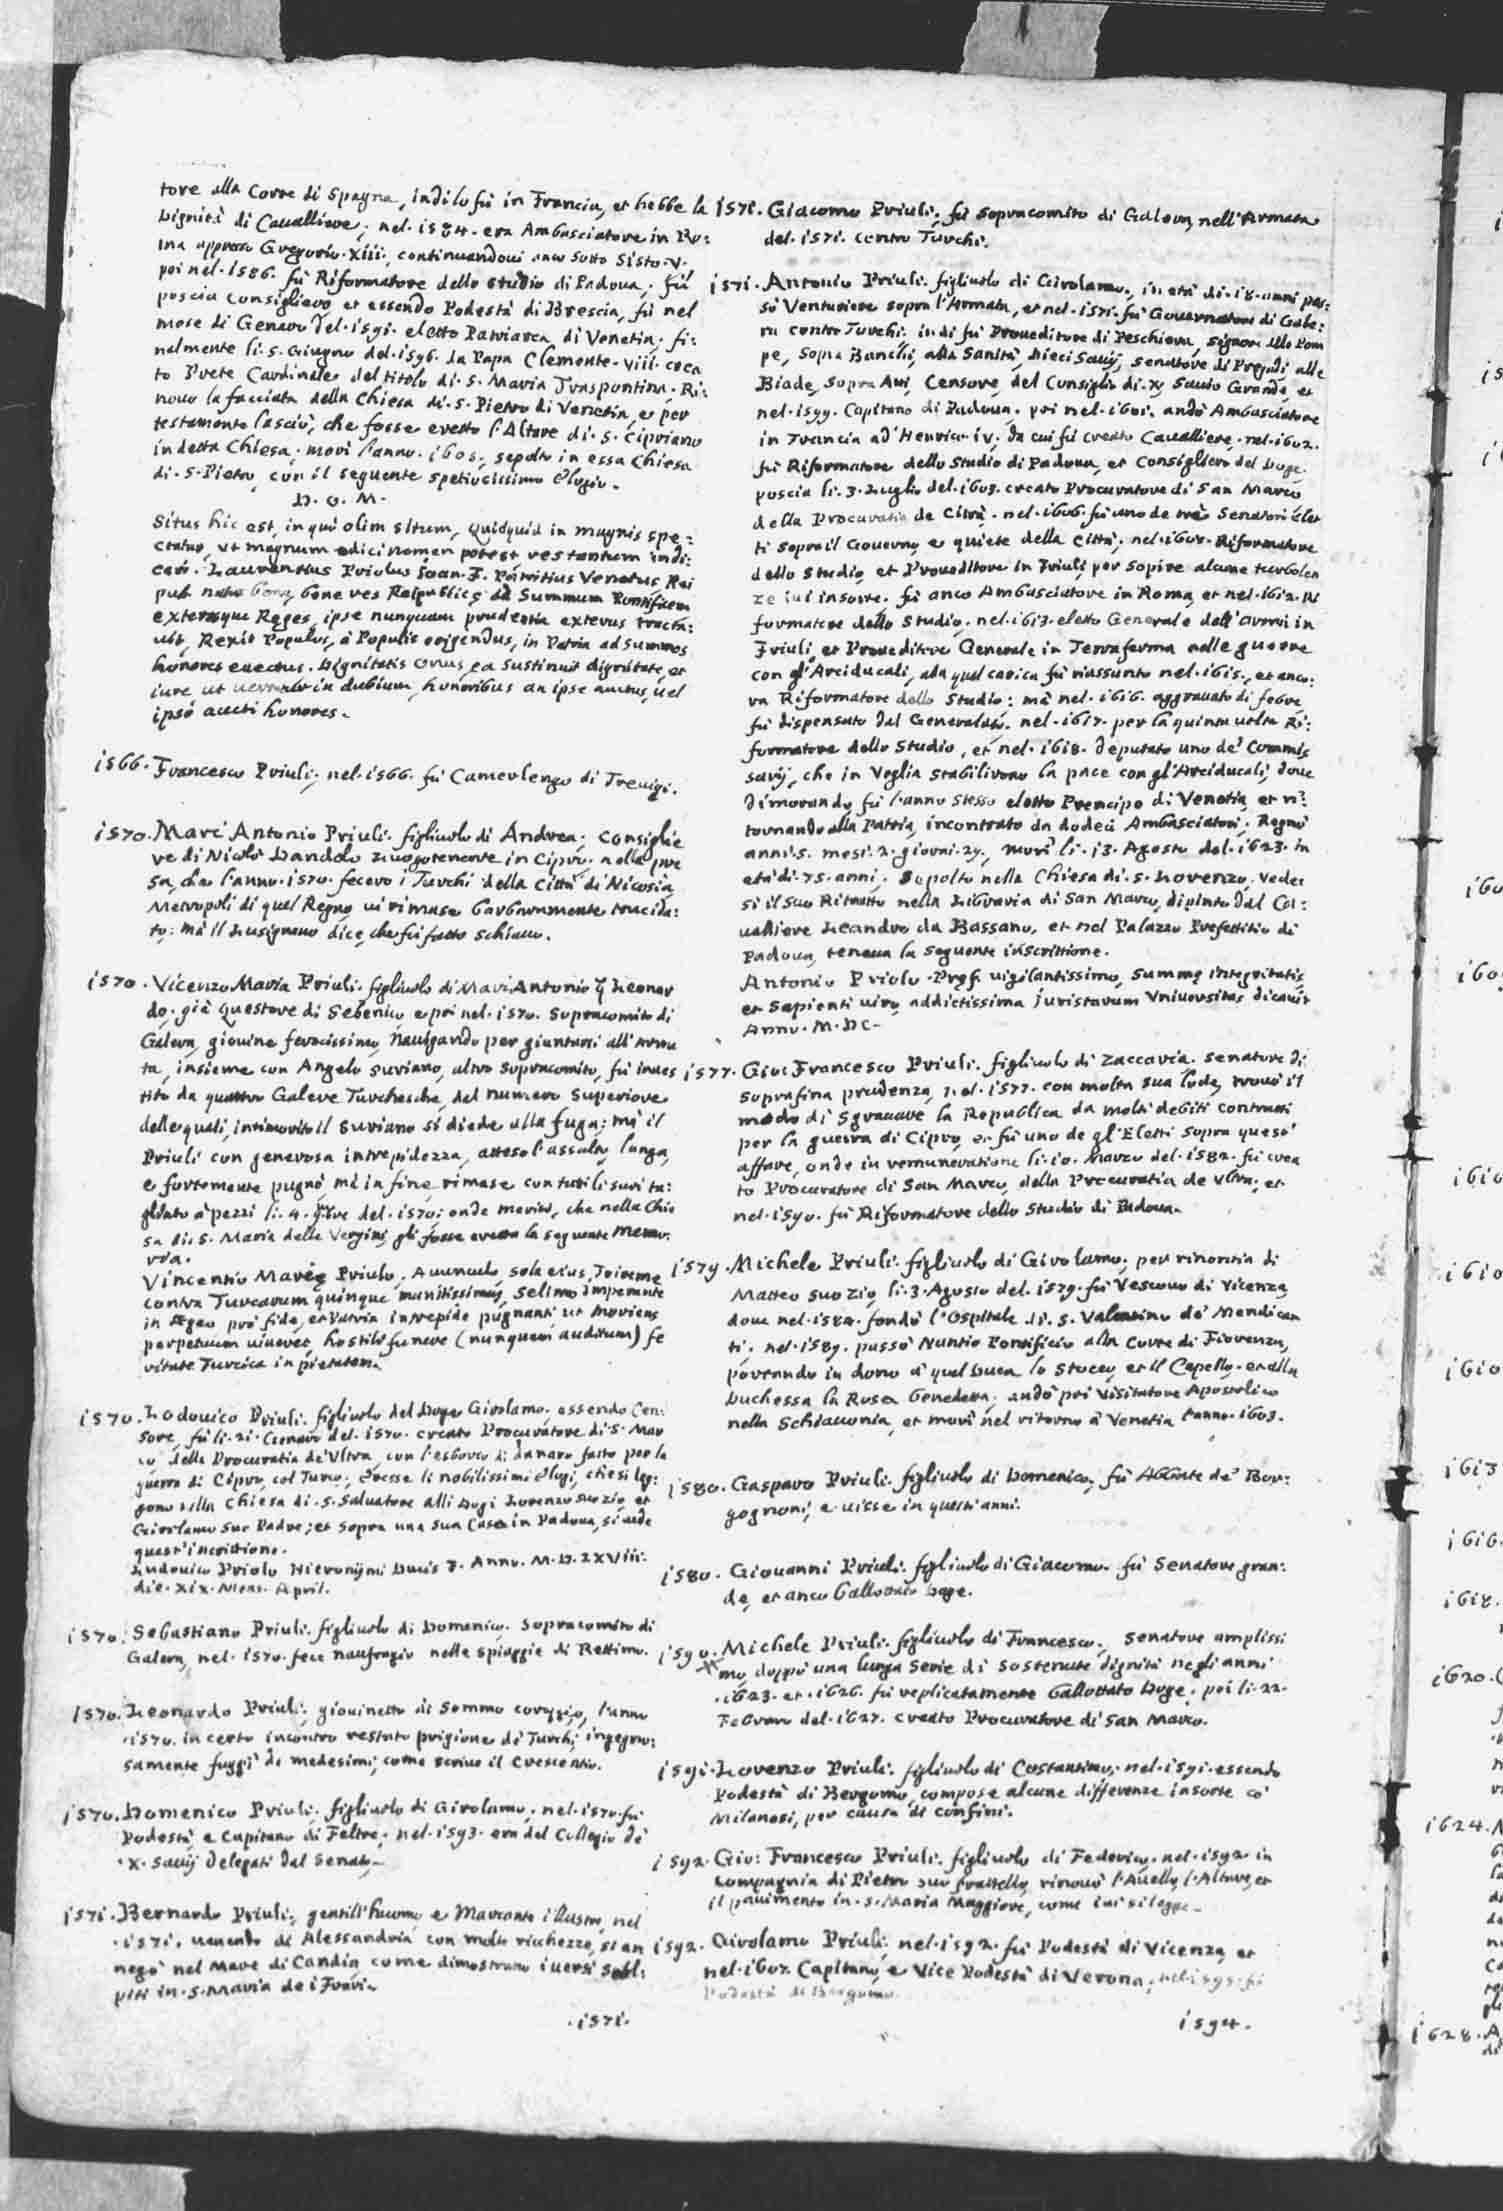 tore alla Corte di Spagna, indi lo fù in Francia, et hebbe la
Dignità di Cavalliere; nel .1584. era Ambasciatore in Ro:
ma appresso Gregorio .XIII., continuandovi anco sotto Sisto .V.
poi nel .1586. fù Riformatore dello studio di Padova; fù
poscia Consigliero, et essendo Podestà di Brescia, fù nel
mese di Genaro del .1591. eletto Patriarca di Venetia; fi:
nalmente li .5. Giugno del .1596. da Papa Clemente .VIII. crea
to Prete Cardinale del titolo di .S. Maria Traspontina. Ri:
novò la facciata della Chiesa di .S. Pietro di Venetia, e per
testamento lasciò, che fosse eretto l'Altare di .S. Cipriano
in detta Chiesa; morì l'anno .1605., sepolto in essa Chiesa
di .S. Pietro, con il seguente spetiocissimo Elogio.
D. O. M.
Situs hic est, in quo olim situm, quidquid in magnis spe:
ctatur, ut magnum edici nomen potest, restantum indi:
cari. Laurentius Priolus Joan. F. Patritius Venetus, Rei
pub. natus bono, bone res Reipublicę ad Summum Pontificem
externosque Reges, ipse nunquam prudentia externus tracta:
vit, Rexit Populos, à Populis erigendus, in Patria ad Summos
honores evectus. Dignitatis onus, ea sustinuit dignitate, et
iure ut vertatur in dubium, honoribus an ipse auctus, vel
ipso aucti honores.
1566. Francesco Priuli; nel .1566. fù Camerlengo di Trevigi.
1570. Marc' Antonio Priuli. figliuolo di Andrea; Consiglie
re di Nicolò Dandolo Luogotenente in Cipro. nella pre
sa, che l'anno .1570. fecero i Turchi della Città di Nicosia,
Metropoli di quel Regno, vi rimase barbaramente trucida:
to; mà il Lusignano dice, che fù fatto schiavo.
1570. Vicenzo Maria Priuli. figliuolo di Marc'Antonio q. Leonar
do. già Questore di Sebenico, e poi nel .1570. Sopracomito di
Galera, giovine ferocissimo, Navigando per giuntarsi all'Arma
ta, insieme con Angelo Suriano, altro Sopracomito, fù inves
tito da quattro Galere Turchesche, dal numero Superiore
delle quali, intimorito il Suriano si diede alla fuga; mà il
Priuli con generosa intrepidezza, atteso l'assalto, lunga,
e fortemente pugnò, mà in fine rimase con tutti li suoi ta:
gliato à pezzi li .4. 7bre del .1570: onde meritò, che nella Chie
sa di .S. Maria delle Vergini, gli fosse eretta la seguente memo:
ria.
Vincentio Marię Priulo. Avunculo, sola eius, Trireme
contra Turcarum quinque munitissimas, Selimo imperante
in Ægeo pro fide, et Patria intrepide pugnanti, ut moriens
perpetuum viveret, hostili funere (nunquam auditum) fe
ritate Turcica in pietatem.
1570. Lodovico Priuli. figliuolo del Doge Girolamo; essendo Cen:
sore, fù li .21. Genaro del .1570. creato Procuratore di .S. Mar
co della Procuratia de Ultra, con l'esborso di danaro fatto per la
guerra di Cipro, col Turco; Eresse li nobilissimi Elogi, che si leg:
gono nella Chiesa di .S. Salvatore alli Dogi Lorenzo suo zio, et
Girolamo suo Padre; et sopra una sua Casa in Padova, si vede
quest'inscrittione.
Ludovico Priolo Hieronijmi Ducis F. Anno. M. D. LXVIII.
die. XIX. Mens. April.
1570. Sebastiano Priuli. figliuolo di Domenico. Sopracomito di
Galera, nel .1570. fece naufragio nelle spiaggie di Rettimo.
1570. Leonardo Priuli, giovinetto di Sommo coraggio, l'anno
.1570. in certo incontro restato prigione de Turchi, ingegno:
samente fuggì da medesimi, come scrive il Crescentio.
1570. Domenico Priuli. figliuolo di Girolamo, nel .1570. fù
Podestà, e Capitano di Feltre, nel .1593. era del Collegio de
.X. Savij delegati dal Senato.
1571. Bernardo Priuli, gentill'huomo e Mercante illustre, nel
.1571. venendo di Alessandria con molte ricchezze, si an
negò nel Mare di Candia, come dimostrano i versi scol:
piti in .S. Maria de i Frari.
.1571.
1571. Giacomo Priuli; fù Sopracomito di Galera, nell'Armata
del .1571. contro Turchi.
1571. Antonio Priuli. figliuolo di Girolamo, in età di .18. anni pas:
sò Venturiere sopra l'Armata, et nel .1571. fù Governatore di Gale:
ra contro Turchi; indi fù Proveditore di Peschiera, Signore alle Pom
pe, Sopra Banchi, alla Sanità, Dieci Savij, Senatore di Pregadi, alle
Biade, Sopra Atti, Censore, del Consiglio di .X, Savio Grande, et
nel .1599. Capitano di Padova. poi nel .1601. andò Ambasciatore
in Francia ad Henrico .IV., da cui fù creato Cavalliere, nel .1602.
fù Riformatore dello Studio di Padova, et Consigliero del Doge
poscia li .3. Luglio del .1603. creato Procuratore di San Marco
della Procuratia de Citrà. nel .1606. fù uno de trè Senatori elet
ti sopra il Governo, e quiete della Città, nel .1608. Riformatore
dello Studio, et Proveditore in Friuli, per sopire alcune turbolen
ze ivi insorte. fù anco Ambasciatore in Roma, et nel .1612. Ri
formatore dello Studio. nel .1613. eletto Generale dell'armi in
Friuli, et Proveditore Generale in Terraferma nelle guerre
con gl'Arciducali, alla qual carica fù riassunto nel .1615., et anco:
ra Riformatore dello Studio: mà nel .1616. aggravato di febre,
fù dispensato dal Generalato. nel .1617. per la quinta volta Ri:
formatore dello Studio, et nel .1618. deputato uno de' Commis
sarij, che in Veglia stabilirono la pace con gl'Arciducali; dove
dimorando, fù l'anno stesso eletto Prencipe di Venetia, et ri:
tornando alla Patria, incontrato da dodeci Ambasciatori. Regnò
anni .5. mesi .2. giorni .27., morì li .13. Agosto del .1623. in
età di .75. anni. Sepolto nella Chiesa di .S. Lorenzo. vedes
si il suo Ritratto nella Libraria di San Marco, dipinto dal Ca:
valliere Leandro da Bassano, et nel Palazzo Prefettitio di
Padova, teneva la seguente inscrittione.
Antonio Priolo. Pręf. vigilantissimo, summę integritatis,
et sapienti viro, addictissima Juristarum Universitas dicavit
Anno. M. DC.
1577. Gio: Francesco Priuli. figliuolo di Zaccaria. Senatore di
soprafina prudenza, nel .1577. con molta sua lode, trovò il
modo di sgravare la Republica da molti debiti contratti
per la guerra di Cipro, et fù uno de gl'Eletti sopra quest'
affare, onde in remuneratione li .10. Marzo del .1582. fù crea
to Procuratore di San Marco, della Procuratia de Ultra, et
nel .1590. fù Riformatore dello Studio di Padova.
1579. Michele Priuli. figliuolo di Girolamo; per rinontia di
Matteo suo zio, li .3. Agosto del .1579. fù Vescovo di Vicenza,
dove nel .1584. fondò l'Ospitale di .S. Valentino de' Mendican
ti. nel .1589. passò Nuntio Pontificio alla Corte di Fiorenza,
portando in dono à quel Duca lo Stocco, et il Capello, et alla
Duchessa la Rosa benedetta; andò poi Visitatore Apostolico
nella Schiavonia, et morì nel ritorno à Venetia l'anno .1603.
1580. Gasparo Priuli. figliuolo di Domenico; fù Abbate de' Bor:
gognoni, e visse in questi anni.
1580. Giovanni Priuli. figliuolo di Giacomo. fù Senatore gran:
de, et anco ballottato Doge.
1590. Michele Priuli. figliuolo di Francesco; Senatore amplissi
mo, doppò una lunga Serie di sostenute dignità negli anni
.1623. et .1626. fù replicatamente ballottato Doge. poi li .22.
Febraro del .1627. creato Procuratore di San Marco.
1591. Lorenzo Priuli. figliuolo di Costantino, nel .1591. essendo
Podestà di Bergomo, compose alcune differenze insorte co'
Milanesi, per causa de confini.
1592. Gio: Francesco Priuli. figliuolo di Federico, nel .1592. in
compagnia di Pietro suo frattello, rinovò l'Avello, l'Altare, et
il pavimento in .S. Maria Maggiore, come ivi si legge.
1592. Girolamo Priuli; nel .1592. fù Podestà di Vicenza, et
nel .1607. Capitano, e Vice Podestà di Verona; nel .1595. fù
Podestà di Bergomo
1594.